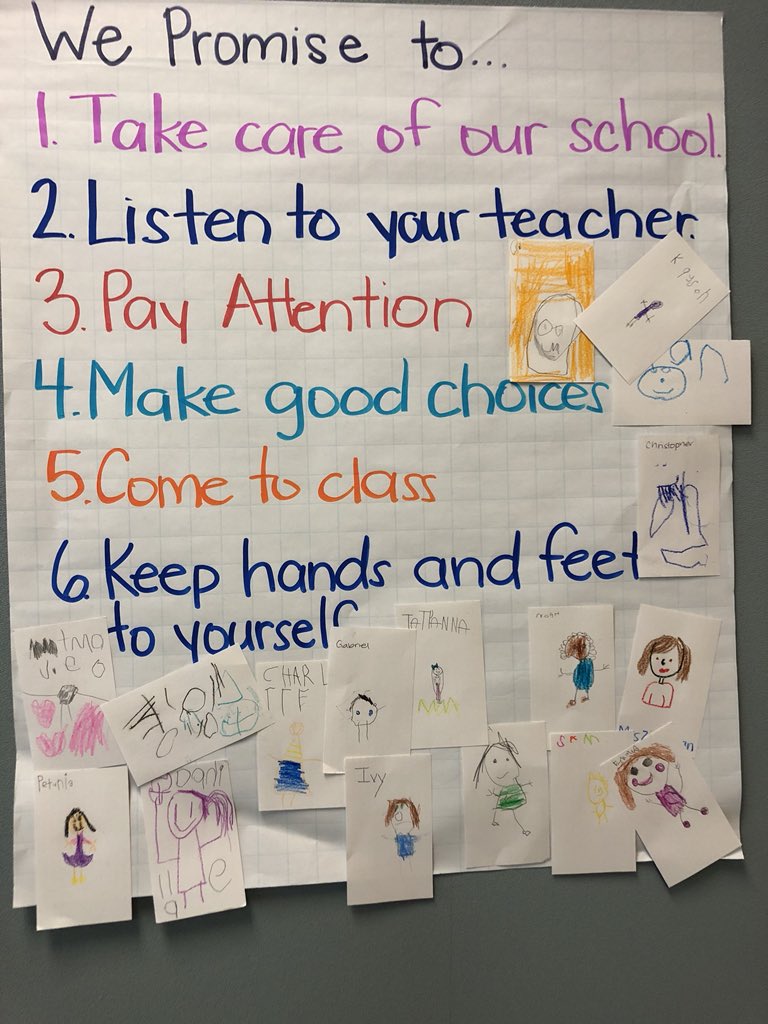 We Promise to...
1. Take care of our school.
2. Listen to your teacher.
3. Pay Attention
4. Make good choices
5. Come to class
6. Keep hands and feet
to yourself
Christopher
TATIANNA
Gabriel
CHARL
Petunia
Dani
Ivy